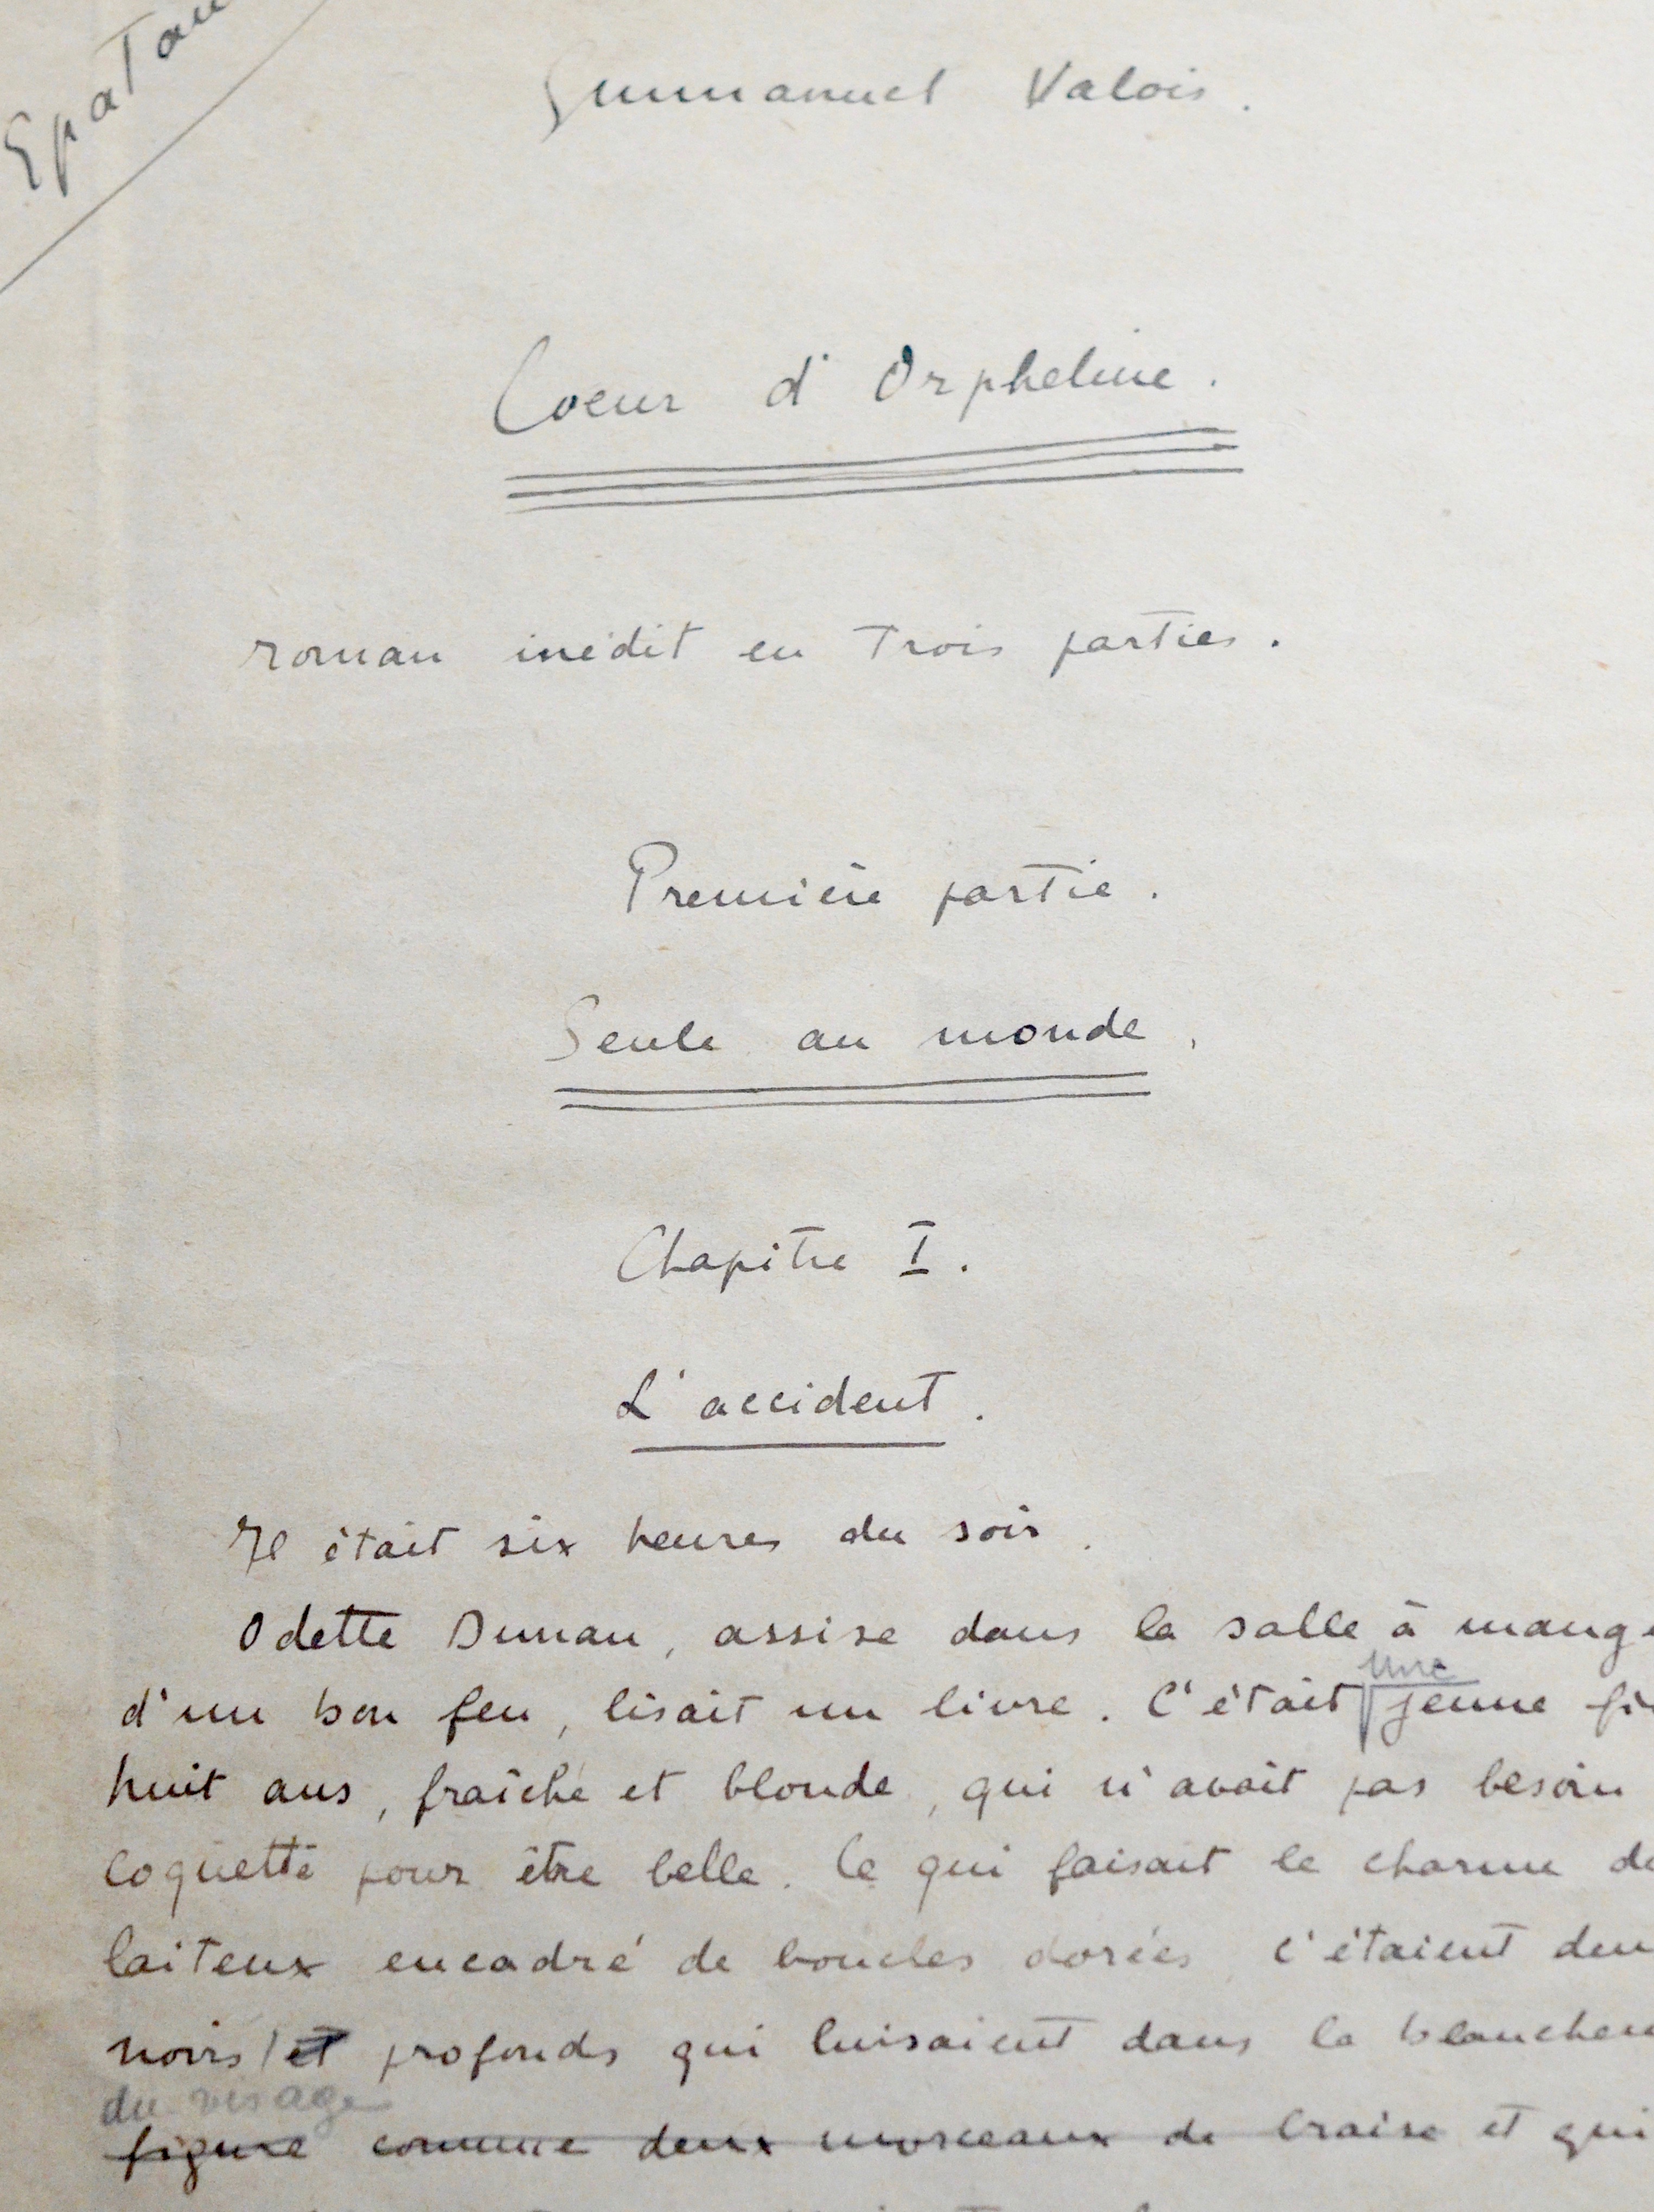 Epatan
Emmanuel Valois.
Coeur d'Orpheline.
roman inédit en Trois parties.
Première partie.
Seule au monde.
Chapitre I.
L'accident.
Il était six heures du soir.
Odette Dunan, assise dans la salle à mange
une
d'un bon feu, lisait un livre. C'était jeune fi
huit ans, fraîche et blonde, qui n'avait pas besoin
coquette pour être belle. Ce qui faisait le charme de
laiteux encadré de boucles dorées, c'étaient deu
noirs et profonds qui luisaient dans la blancheu
du visage
figure comme deux morceaux de braise et qui